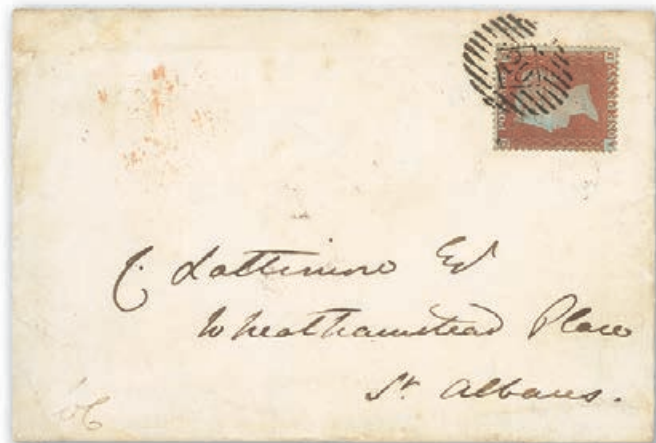 C. Lattimore Esq
Wheathamstead Place
St Albans.
ONE PENNY